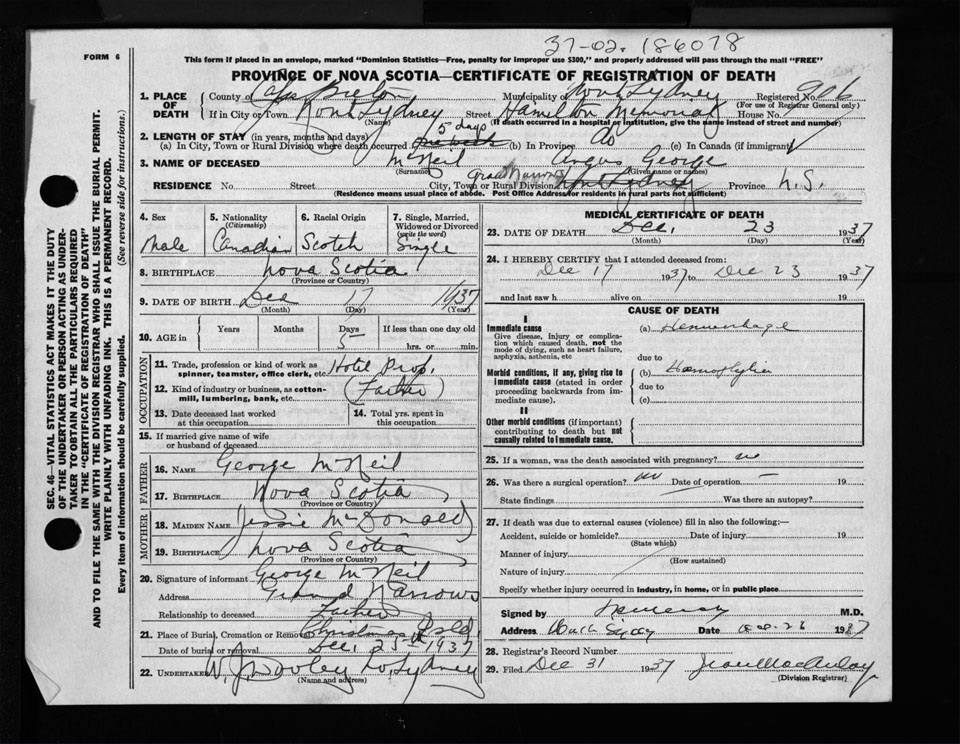 37-02. 186078
FORM 6
This form if placed in an envelope, marked "Dominion Statistics—Free, penalty for improper use $300," and properly addressed will pass through the mail "FREE"
PROVINCE OF NOVA SCOTIA—CERTIFICATE OF REGISTRATION OF DEATH
1. PLACE OF DEATH County of Cape Breton Municipality North Sydney Registered No. 906
(For use of Registrar General only)
If in City or Town North Sydney Street Hamilton Memorial House No.
(Name) (If death occurred in a hospital or institution, give the name instead of street and number)
2. LENGTH OF STAY (in years, months and days) 5 days
(a) In City, Town or Rural Division where death occurred one week (b) In Province do (c) In Canada (if immigrant)
3. NAME OF DECEASED McNeil Angus George
(Surname) (Given name or names)
RESIDENCE No. Street City, Town or Rural Division Grand Narrows Province N.S.
(Residence means usual place of abode. Post Office Address for residents in rural parts not sufficient)
4. Sex 5. Nationality (Citizenship) 6. Racial Origin 7. Single, Married, Widowed or Divorced (write the word)
Male Canadian Scotch Single
8. BIRTHPLACE Nova Scotia
(Province or Country)
9. DATE OF BIRTH Dec 17 1937
(Month) (Day) (Year)
10. AGE in Years Months Days If less than one day old
5 hrs. or min.
OCCUPATION
11. Trade, profession or kind of work as spinner, teamster, office clerk, etc. Hotel Prop.
12. Kind of industry or business, as cotton-mill, lumbering, bank, etc. (Father)
13. Date deceased last worked at this occupation
14. Total yrs. spent in this occupation
15. If married give name of wife or husband of deceased
FATHER
16. NAME George McNeil
17. BIRTHPLACE Nova Scotia
(Province or Country)
MOTHER
18. MAIDEN NAME Jessie McDonald
19. BIRTHPLACE Nova Scotia
(Province or Country)
20. Signature of informant George McNeil
Address Grand Narrows
Relationship to deceased Father
21. Place of Burial, Cremation or Removal Christmas Isld.
Date of burial or removal Dec. 25th 1937
22. UNDERTAKER W. J. Dooley No Sydney
(Name and address)
MEDICAL CERTIFICATE OF DEATH
23. DATE OF DEATH Dec. 23 1937
(Month) (Day) (Year)
24. I HEREBY CERTIFY that I attended deceased from:
Dec 17 1937 to Dec 23 1937
and last saw h alive on 19
CAUSE OF DEATH
I
Immediate cause (a) Hemorrhage
Give disease, injury or complication which caused death, not the mode of dying, such as heart failure, asphyxia, asthenia, etc
due to
Morbid conditions, if any, giving rise to immediate cause (stated in order proceeding backwards from immediate cause). (b) Hemophylia
due to
(c)
II
Other morbid conditions (if important) contributing to death but not causally related to immediate cause.
25. If a woman, was the death associated with pregnancy? no
26. Was there a surgical operation? no Date of operation — 19
State findings Was there an autopsy?
27. If death was due to external causes (violence) fill in also the following:—
Accident, suicide or homicide? Date of injury 19
(State which)
Manner of injury
(How sustained)
Nature of injury
Specify whether injury occurred in industry, in home, or in public place
Signed by M.D.
Address North Sydney Date 1937
28. Registrar's Record Number
29. Filed Dec 31 1937 Jean MacAulay
(Division Registrar)
SEC. 46—VITAL STATISTICS ACT MAKES IT THE DUTY
OF THE UNDERTAKER OR PERSON ACTING AS UNDER-
TAKER TO OBTAIN ALL THE PARTICULARS REQUIRED
IN THE "CERTIFICATE OF REGISTRATION OF DEATH"
AND TO FILE THE SAME WITH THE DIVISION REGISTRAR WHO SHALL ISSUE THE BURIAL PERMIT.
WRITE PLAINLY WITH UNFADING INK. THIS IS A PERMANENT RECORD.
Every item of information should be carefully supplied. (See reverse side for instructions.)